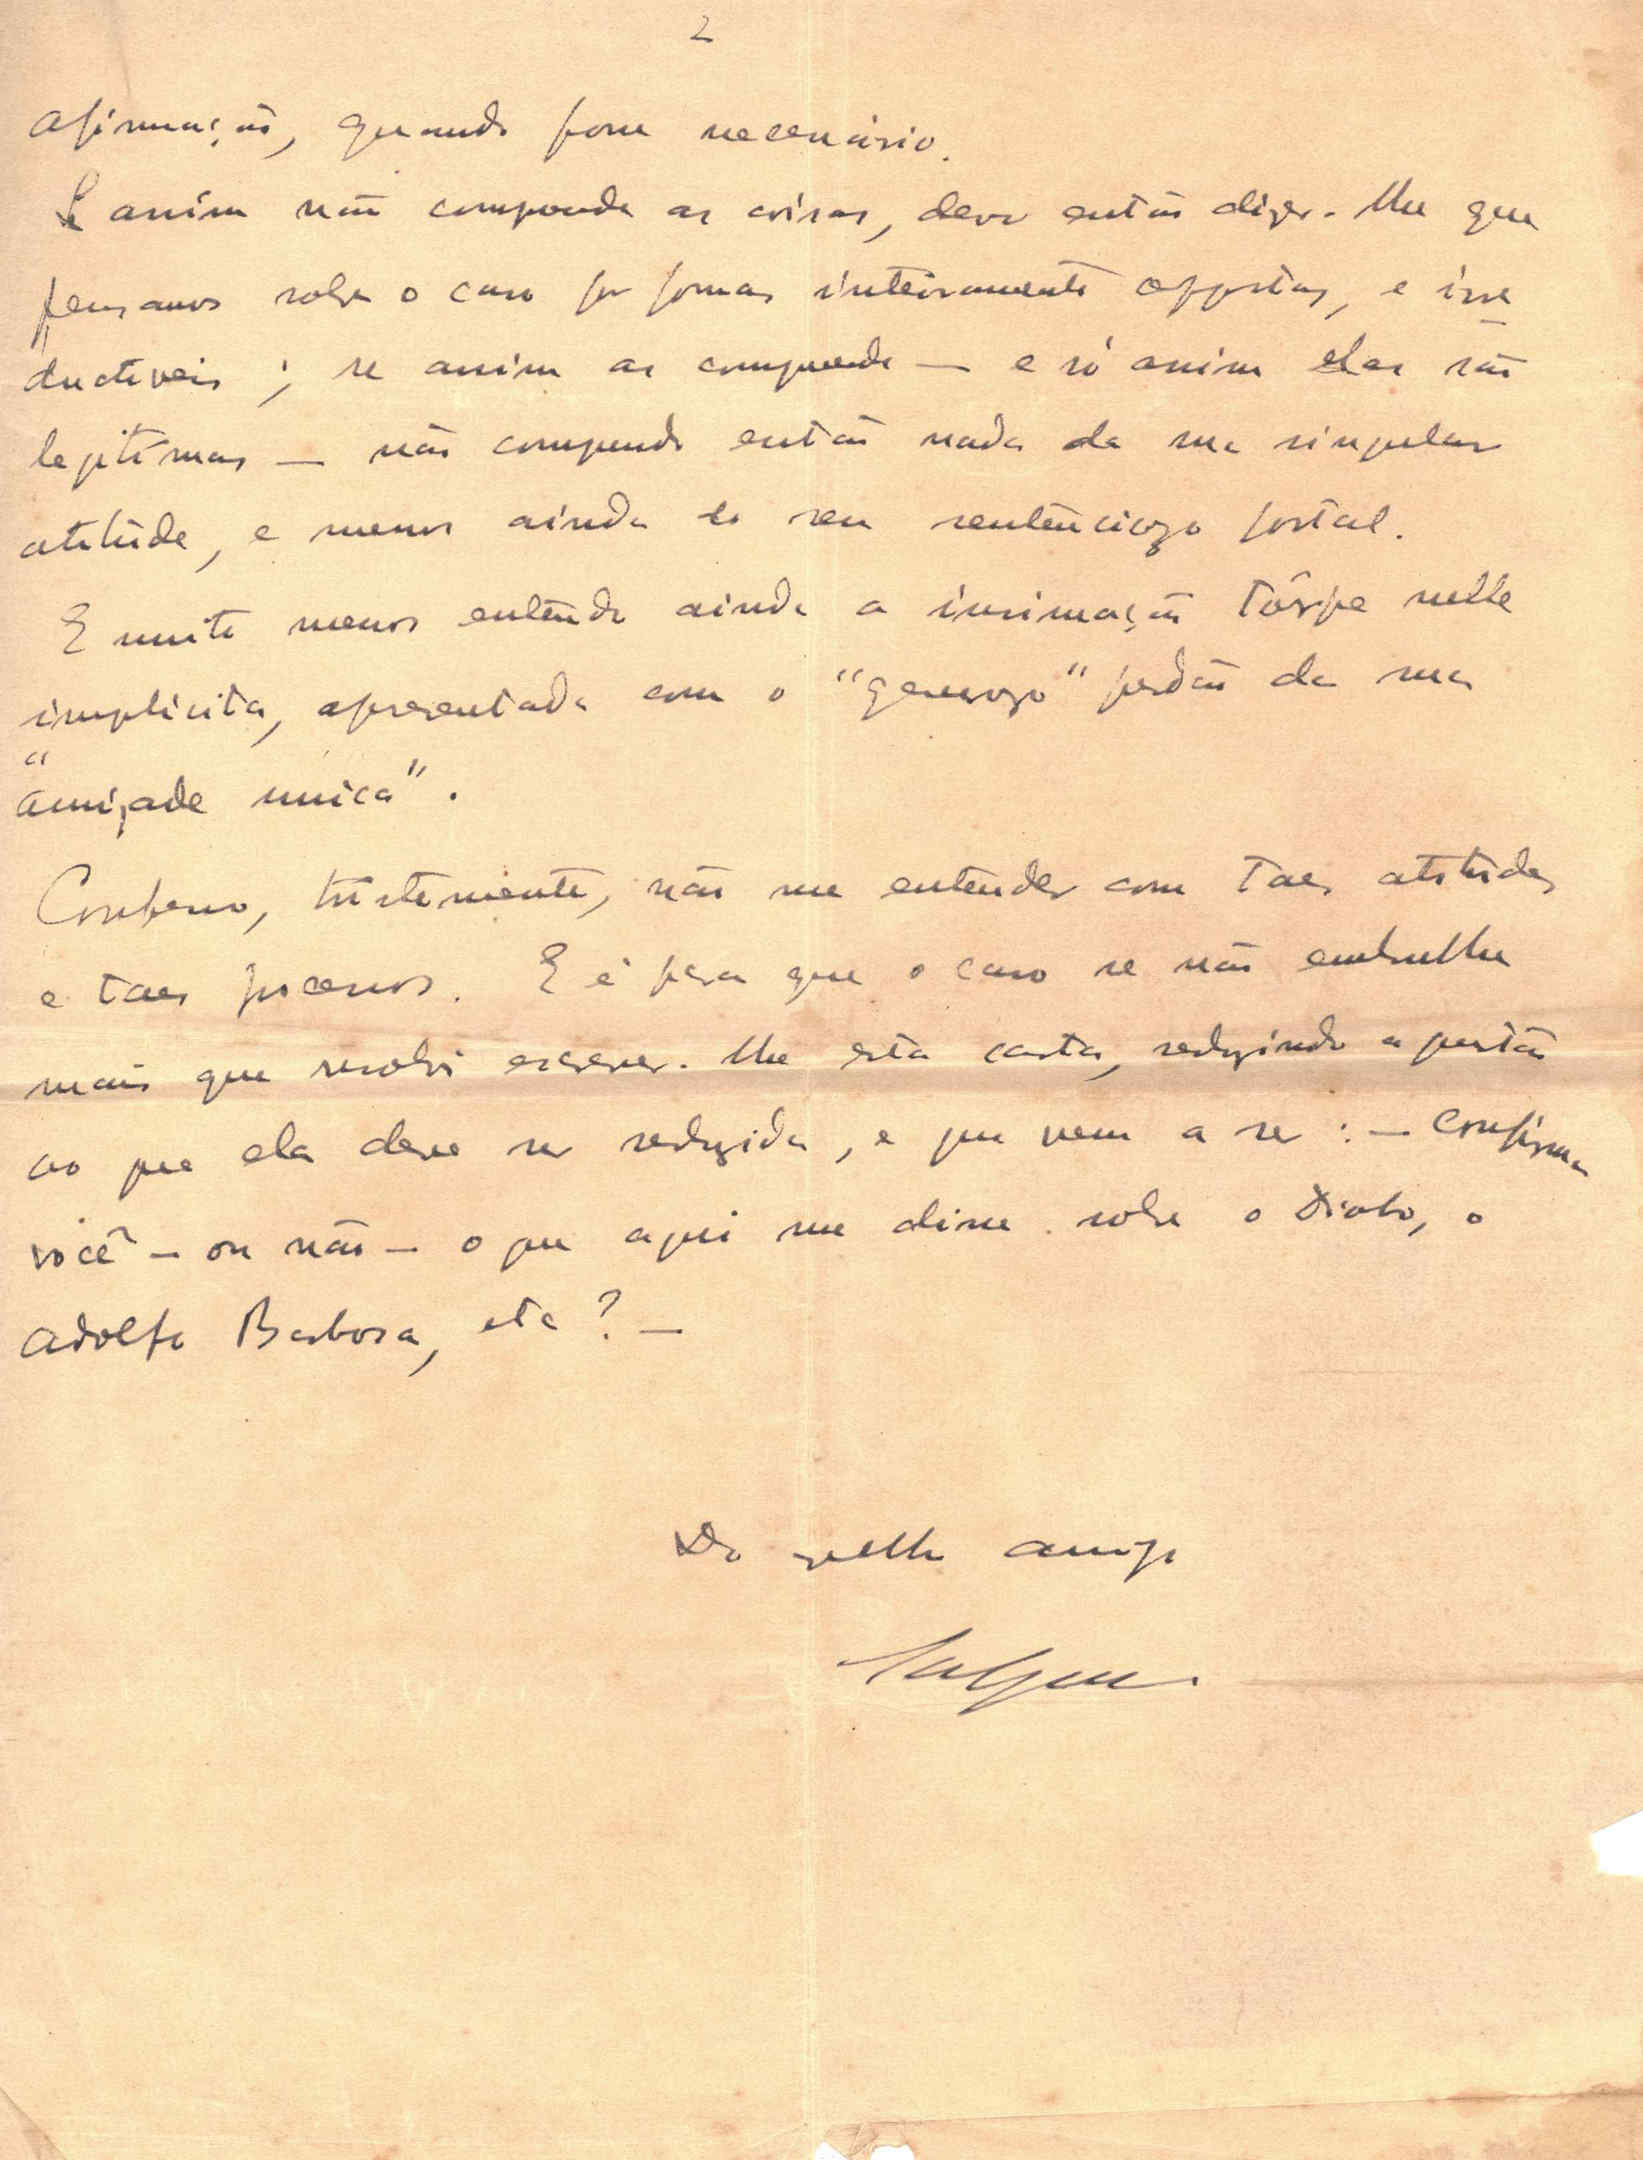 2
afirmação, quando fosse necessário.
Se assim não comprende as coisas, devo então dizer-lhe que
pensamos sobre o caso por formas inteiramente oppostas, e irre
ductiveis; se assim as comprende — e só assim elas são
legitimas — não comprendo então nada da sua singular
atitude, e menos ainda do seu sentenciozo postal.
E muito menos entendo ainda a insinuação tôrpe nelle
implicita, apresentada com o "generozo" perdão da sua
"amizade unica".
Confesso, tristemente, não me entender com taes atitudes
e taes processos. E é para que o caso se não embrulhe
mais que resolvi escrever-lhe esta carta, reduzindo a questão
ao que ela deve ser reduzida, e que vem a ser: — Confirma
você — ou não — o que aqui me disse sobre o Diabo, o
Adolfo Barbosa, etc? —
Do velho amigo